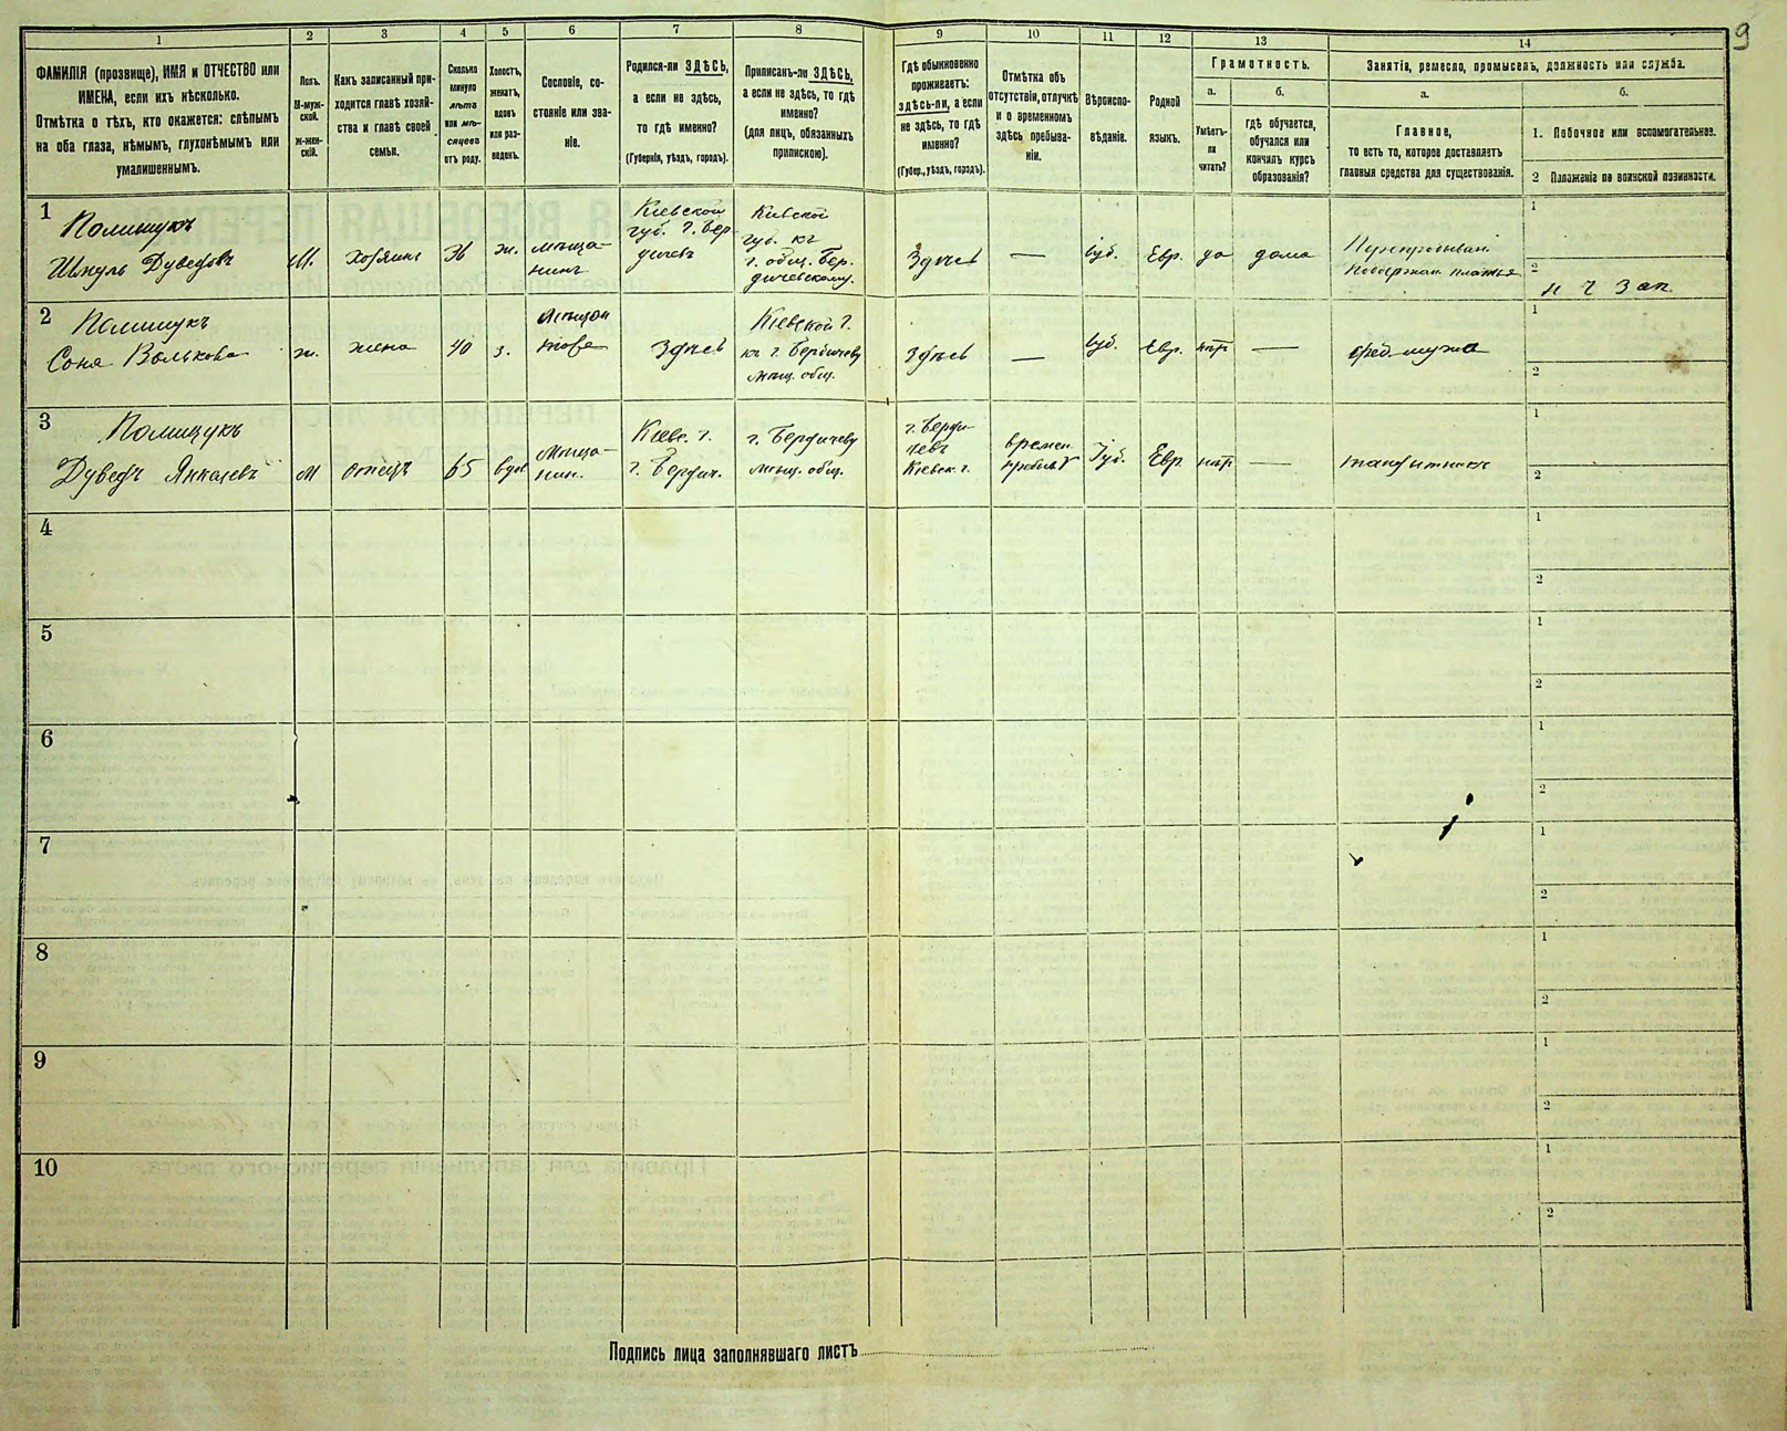 9
1 2 3 4 5 6 7 8 9 10 11 12 13 14
ФАМИЛІЯ (прозвище), ИМЯ и ОТЧЕСТВО или
ИМЕНА, если ихъ нѣсколько.
Отмѣтка о тѣхъ, кто окажется: слѣпымъ
на оба глаза, нѣмымъ, глухонѣмымъ или
умалишеннымъ.
Полъ.
М-муж-
ской.
ж-жен-
скій.
Какъ записанный при-
ходится главѣ хозяй-
ства и главѣ своей
семьи.
Сколько
минуло
лѣтъ
или мѣ-
сяцевъ
отъ роду.
Холостъ,
женатъ,
вдовъ
или раз-
веденъ.
Сословіе, со-
стояніе или зва-
ніе.
Родился-ли ЗДѢСЬ,
а если не здѣсь,
то гдѣ именно?
(Губернія, уѣздъ, городъ).
Приписанъ-ли ЗДѢСЬ,
а если не здѣсь, то гдѣ
именно?
(для лицъ, обязанныхъ
припискою).
Гдѣ обыкновенно
проживаетъ:
здѣсь-ли, а если
не здѣсь, то гдѣ
именно?
(Губер., уѣздъ, городъ).
Отмѣтка объ
отсутствіи, отлучкѣ
и о временномъ
здѣсь пребыва-
ніи.
Вѣроиспо-
вѣданіе.
Родной
языкъ.
Грамотность.
а.
Умѣетъ-
ли
читать?
б.
гдѣ обучается,
обучался или
кончилъ курсъ
образованія?
Занятія, ремесло, промыселъ, должность или служба.
а.
Главное,
то есть то, которое доставляетъ
главныя средства для существованія.
б.
1. Побочное или вспомогательное.
2 Положеніе по воинской повинности.
1
Полищукъ
Шмуль Дуведовъ
М.
хозяинъ
36
ж.
мѣща-
нинъ
Кіевской
губ. г. Бер-
дичевъ
Кіевской
губ. къ
г. общ. Бер.
дичевскому.
Здѣсь
—
Іуд.
Евр.
да
дома
поддержан. платья
1
2
н ч Зап.
2
Полищукъ
Соня Волькова
ж.
жена
40
з.
Здѣсь
Кіевской г.
къ г. Бердичеву
мѣщ. общ.
Здѣсь
—
Іуд.
Евр.
нѣт
—
при мужѣ
1
2
3
Полищукъ
Дуведъ Янкелевъ
М
отецъ
65
вдов
Мѣща-
нин.
Кіевс. г.
г. Бердич.
г. Бердичеву
мѣщ. общ.
г. Берди-
чевъ
Кіевск. г.
времен.
Іуд.
Евр.
нѣт
—
1
2
4
1
2
5
1
2
6
1
2
7
1
2
8
1
2
9
1
2
10
1
2
Подпись лица заполнявшаго листъ